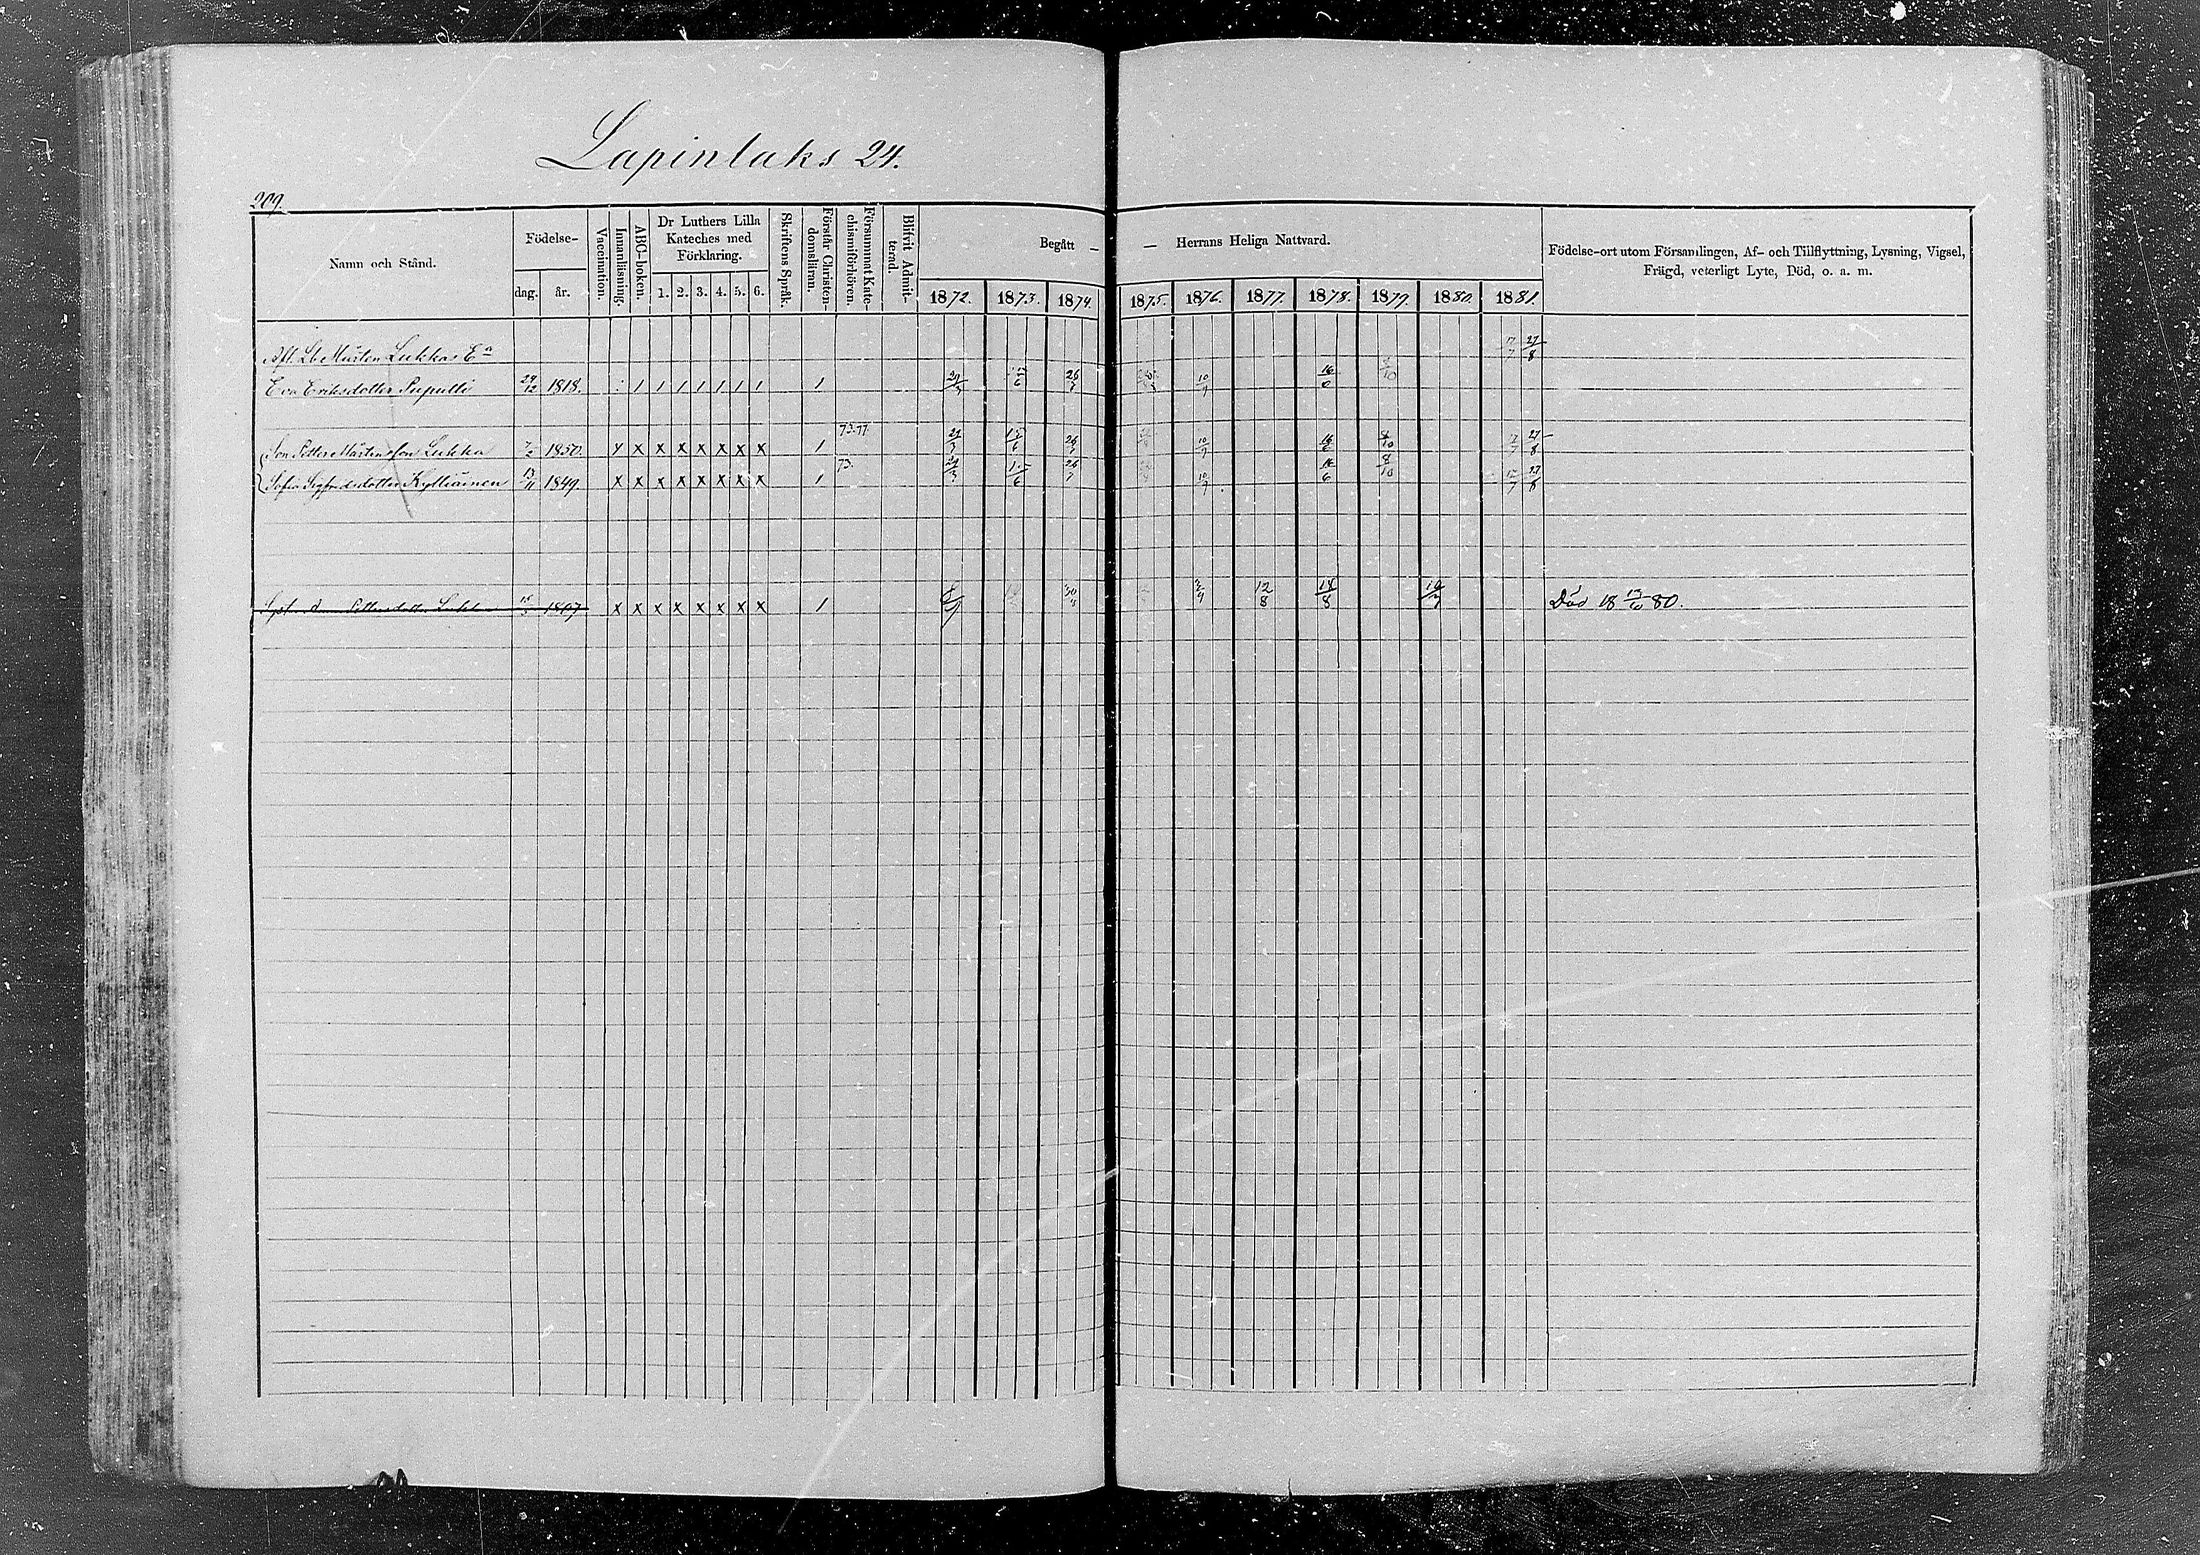 Lapinlaks 24.
209.
Namn och Stånd.
Födelse-
dag. år.
Vaccination.
Innanläsning.
ABC-boken.
Dr Luthers Lilla
Kateches med
Förklaring.
1. 2. 3. 4. 5. 6.
Skriftens Språk.
Förstår Christen-
domsläran.
Försummat Kate-
chismiförhören.
Blifvit Admit-
terad.
Begått — — Herrans Heliga Nattvard.
1872. 1873. 1874. 1875. 1876. 1877. 1878. 1879. 1880. 1881.
Födelse-ort utom Församlingen, Af- och Tillflyttning, Lysning, Vigsel,
Frägd, veterligt Lyte, Död, o. a. m.
Afl. Lb Mårten Lukkas Ea 27/8
Eva Eriksdotter Puputti 24/12 1818. 1 1 1 1 1 1 1 1 29/3 26/7 10/9 16/6
73.77
Son Petter Mårtensson Lukka 7/2 1850. x x x x x x x x 1 29/3 15/6 26/7 10/9 16/6 8/10 27/8
73.
Sofia Sigfridsdotter Kylliäinen 13/11 1849. x x x x x x x x 1 29/3 26/7 10/9 16/6 8/10 27/8
Pettersdotter Lukka 1807 x x x x x x x x 1 12/8 18/8 Död 18 80.